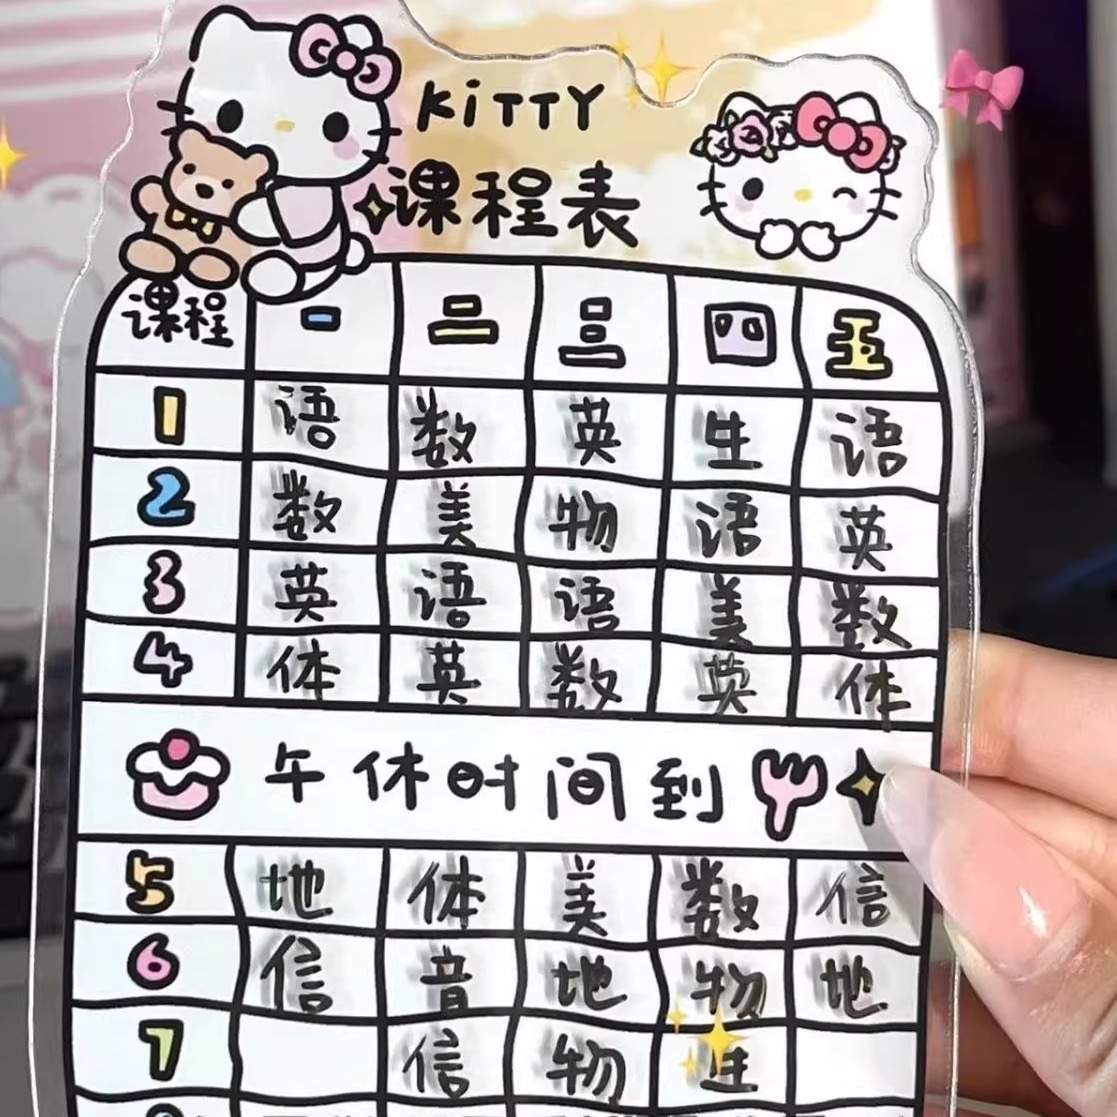 KiTTY
课程表
课程 一 二 三 四 五
1 语 数 英 生 语
2 数 美 物 语 英
3 英 语 语 美 数
4 体 英 数 英 体
午休时间到
5 地 体 美 数 信
6 信 音 地 物 地
7 信 物 生